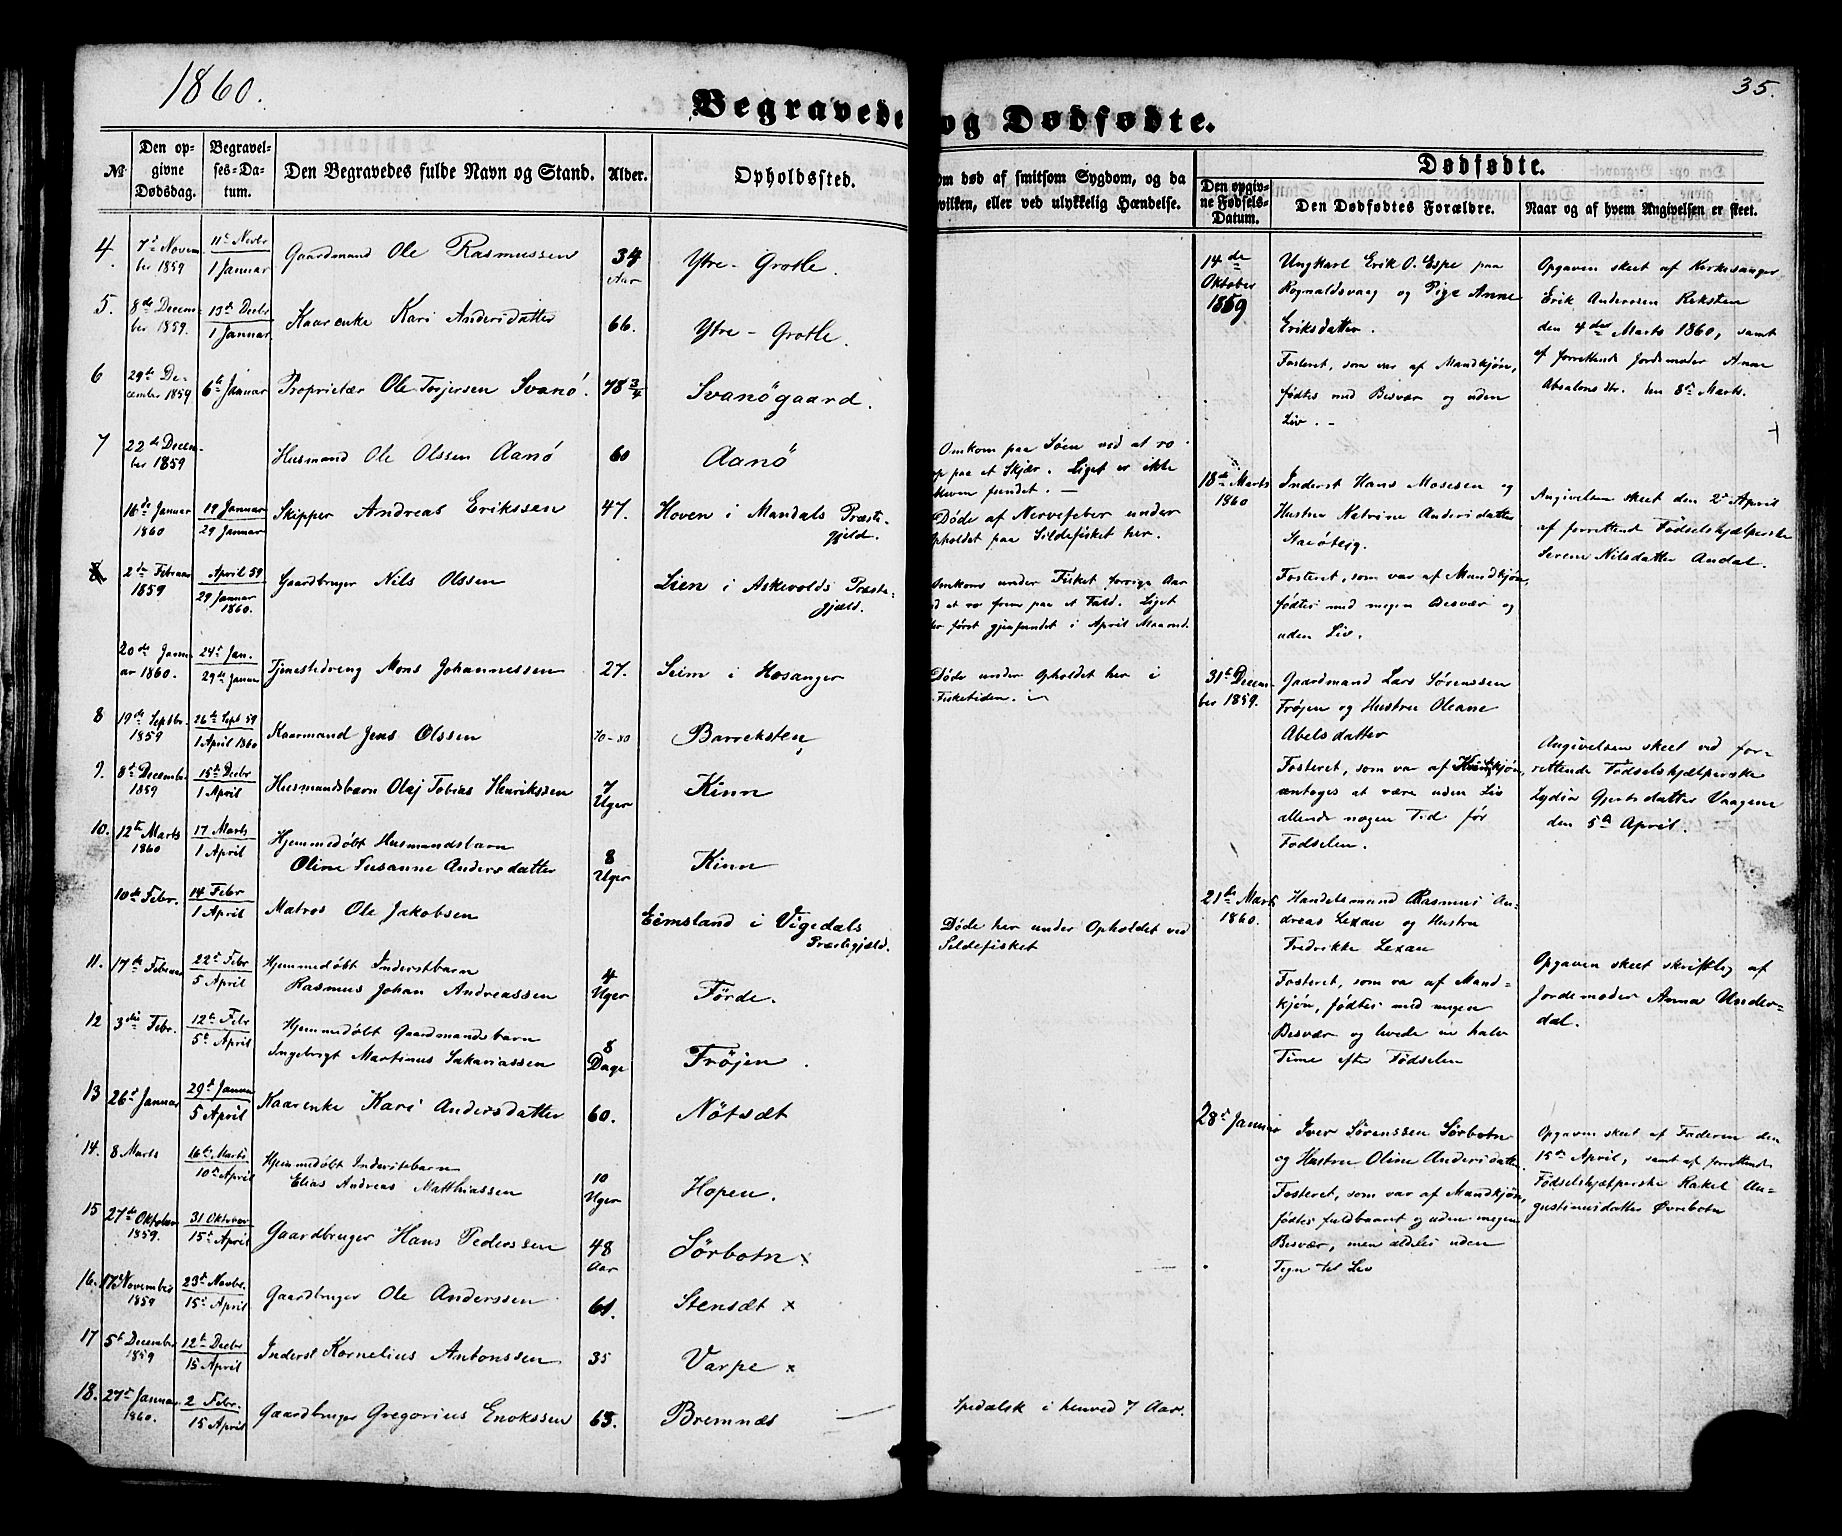 1860.
35.
Begravede og Dødfødte.
№
Den opgivne Dødsdag.
Begravelses-Datum.
Den Begravedes fulde Navn og Stand.
Alder.
Opholdssted.
Om død af smitsom Sygdom, og da
hvilken, eller ved ulykkelig Hændelse.
Dødfødte.
Den opgivne Fødsels-Datum.
Den Dødfødtes Forældre.
Naar og af hvem Angivelsen er skeet.
4. 7de November 1859 11te Novbr 1 Januar Gaardmand Ole Rasmussen 34 Aar Ytre-Grotle.
5. 8de December 1859. 13de Decbr 1 Januar Kaarenke Kari Andersdatter 66. Ytre-Grotle.
6 29de December 1859 6te Januar Proprietær Ole Torjersen Svanö. 78 3/4 Svanögaard.
7 22de December 1859 Husmand Ole Olssen Aanö 60 Aanö
Omkom paa Söen ved at ro
op paa et Skjær. Liget er ikke
bleven fundet. —
16de Januar 1860 19 Januar 29 Januar Skipper Andreas Erikssen 47. Hoven i Mandals Præstegjeld.
Döde af Nervefeber under
Opholdet paa Sildefisket her.
2de Februar 1859 April 59 29 Januar 1860. Gaardbruger Nils Olssen Lien i Askevolds Præstegjæld.
Omkom under Fisket forrige Aar
ved at ro frem paa et Fald. Liget
er först gjenfundet i April Maaned.
20de Januar 1860. 24de Jan. 29de Januar Tjenestedreng Mons Johannessen 27. Seim i Hosanger
Döde under Opholdet her i
Fisketiden.
8 19de Septbr. 1859 26de Sept 59 1 April 1860 Kaarmand Jens Olssen 70-80 Barreksten,
9. 8de December 1859 15de Decbr 1 April Husmandsbarn Olaj Tobias Henrikssen 7 Uger Kinn
10. 12te Marts 1860 17 Marts 1 April Hjemmedöbt Husmandsbarn
Oline Susanne Andersdatter 8 Uger Kinn
10de Febr. 14 Febr 1 April Matros Ole Jakobsen Eimsland i Vigedals Præstegjæld.
Döde her under Opholdet ved
Sildefisket
11. 17de Februar 22de Febr 5 April Hjemmedöbt Inderstbarn
Rasmus Johan Andreassen 4 Uger Förde.
12 3die Febr. 12te Febr 5te April Hjemmedöbt Gaardmandsbarn
Ingebrigt Martinus Sakariassen 8 Dage Fröjen.
13 26de Januar 29de Januar 5 April Kaarenke Kari Andersdatter 60. Nötsæt
14. 8 Marts 16te Marts 10de April Hjemmedöbt Inderstebarn
Elias Andreas Matthiassen 10 Uger Hopen.
15 27de Oktober 1859. 31 Oktober 15de April Gaardbruger Hans Pederssen 48 Aar Sörbotn x
16. 17de November 1859 23de Novbr. 15de April Gaardbruger Ole Anderssen 61. Stensæt x
17 5te December 1859 12te Decbr 15 April Inderst Kornelius Antonssen 35 Varpe x
18. 27de Januar 1860. 2 Febr. 15 April Gaardbruger Gregorius Enokssen 63. Bremnæs
Spedalsk i henved 7 Aar.
14de Oktober 1859
Ungkarl Erik O. Espe paa
Rognaldsvaag og Pige Anne
Eriksdatter.
Fosteret, som var af Mandkjön,
födtes med Besvær og uden
Liv. —
Opgaven skeet af Kirkesanger
Erik Andersen Reksten
den 4de Marts 1860, samt
af forrettende Jordemoder Anne
Absalonsdtr. den 8de Marts.
18de Marts 1860
Inderst Hans Mosesen og
Hustru Katrine Andersdatter
Fosteret, som var af Mandkjön,
födtes med megen Besvær og
uden Liv.
Angivelsen skeet den 2de April
af forrettende Födselshjælperske
Serene Nilsdatter Andal.
31te December 1859.
Gaardmand Lars Sörenssen
Fröjen og Hustru Oleane
Abelsdatter
Fosteret, som var af Kvindkjön,
antages at være uden Liv
allende nogen Tid för
Födselen.
Angivelsen skeet ved forrettende
Födselshjælperske
Lydia Gjertsdatter Vaagene
den 5te April.
21de Marts 1860.
Handelsmand Rasmus Andreas
Lexau og Hustru
Fredrikke Lexau
Fosteret, som var af Mandkjön,
födtes med megen
Besvær og levede en halv
Time efter Födselen
Opgaven skeet skriftlig af
Jordemoder Anna Underdal.
28de Januar
Iver Sörenssen Sörbotn
og Hustru Oline Andersdatter.
Fosteret, som var af Mandkjön,
födtes fuldbaaret og uden megen
Besvær, men aldeles uden
Tegn til Liv
Opgaven skeet af Faderen den
15de April, samt af forrettende
Födselshjælperske Rakel Augustinusdatter
Övrebotn